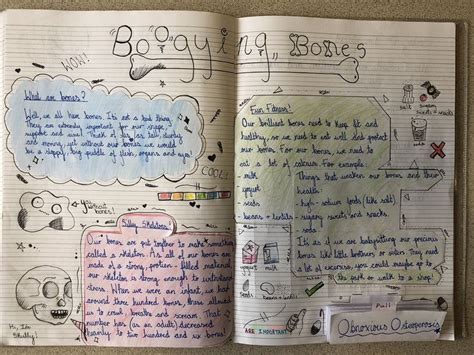 WOW!
Boogying Bones
What are bones?
Well, we all have bones. It's not a bad thing.
They are extremely important for our shape,
support and
and moving, yet without our bones we would
be a sloppy, big puddle of flesh, organs and eyes!
COOL!
your
bones!
Silly Skeletons!
Our bones are put together to make something
called a skeleton. As all of our bones are
made of a strong, protein-filled material,
our skeleton is strong enough to withstand
stress. When we were an infant, we had
around three hundred bones, thus allowed
us to crawl, breathe and scream. That
number has (as an adult) decreased
to two hundred and six bones!
Hi, I'm
Skully!
Fun Facts!
Our brilliant bones need to keep fit and
healthy, so we need to eat well and protect
our bones. For our bones, we need to
eat a lot of calcium. For example:
- milk
- yogurt
- seeds
- beans + lentils
Things that weaken our bones and their
health:
- high-sodium foods (like salt)
- sugary sweets and snacks.
- soda.
It is as if we are babysitting our precious
bones like little brothers or sisters. They need
a lot of exercise, you could maybe go to
the park or walk to a shop!
salt
sweets + snacks
soda
yogurt
milk
seeds
beans + lentils
ARE IMPORTANT!
Pull
Obnoxious Osteoporosis